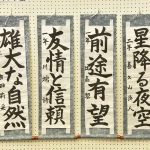 星降る夜空
前途有望
友情と信頼
雄大な自然